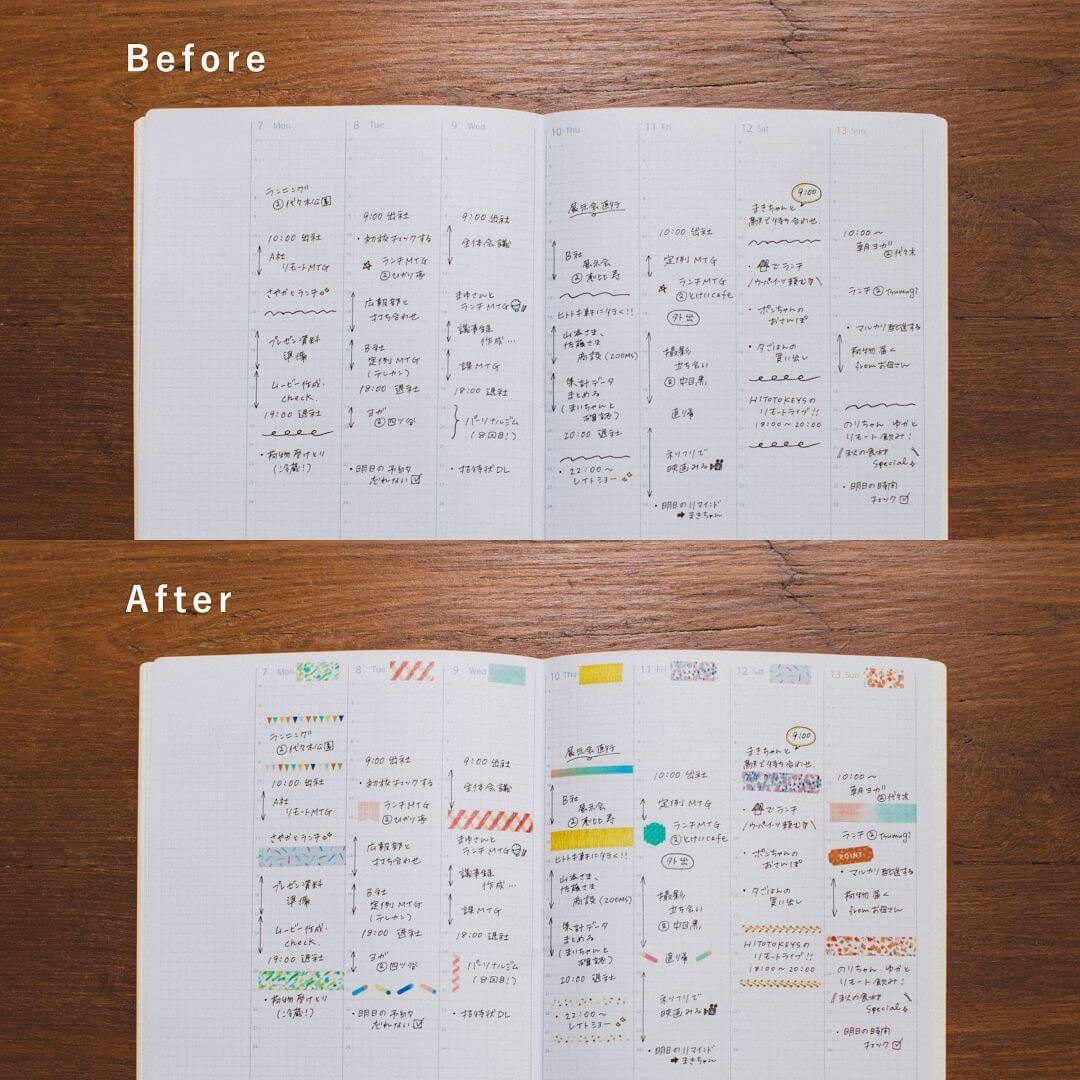 Before
7 Mon
ランニング
@代々木公園
10:00 出社
A社
リモートMTG
さやかとランチ
プレゼン資料
準備
ムービー作成・
check.
19:00 退社
・荷物受けとり
(冷蔵!)
8 Tue
9:00 出社
・初校チェックする
ランチMTG
@ひかり亭
広報部と
打ち合わせ
B社
定例MTG
(テレカン)
18:00 退社
ヨガ
@四ツ谷
・明日の予約
忘れない
9 Wed
9:00 出社
全体会議
まゆさんと
ランチMTG
議事録
作成...
課MTG
18:00 退社
パーソナルジム
(8回目!)
・招待状DL
10 Thu
展示会直行
B社
展示会
@恵比寿
ヒトトキ軒に行く!!
山本さま、
佐藤さま
商談(200MS)
集計データ
まとめる
(まいちゃんと
確認)
20:00 退社
・22:00〜
レイトショー
11 Fri
10:00 出社
定例MTG
ランチMTG
@とけいcafe
外出
撮影
立ち会い
@中目黒
直り帰
ネリフリで
映画みる
・明日のリマインド
➡まきちゃん
12 Sat
9:00
まきちゃんと
駅で待ち合わせ.
・家でランチ
/ウーバーイーツ頼む\
・ポンちゃんの
おさんぽ
・夕ごはんの
買い出し
HITOTOKEYSの
リモートライブ!!
18:00〜20:00
13 Sun
10:00〜
朝ヨガ
@代々木
ランチ@Tsumugi
・マルカリ発送する
荷物届く
fromお母さん
のりちゃん、ゆかと
リモート飲み!
秋の食材
Special
・明日の時間
チェック
After
7 Mon
ランニング
@代々木公園
10:00 出社
A社
リモートMTG
さやかとランチ
プレゼン資料
準備
ムービー作成・
check.
19:00 退社
・荷物受けとり
(冷蔵!)
8 Tue
9:00 出社
・初校チェックする
ランチMTG
@ひかり亭
広報部と
打ち合わせ
B社
定例MTG
(テレカン)
18:00 退社
ヨガ
@四ツ谷
・明日の予約
忘れない
9 Wed
9:00 出社
全体会議
まゆさんと
ランチMTG
議事録
作成...
課MTG
18:00 退社
パーソナルジム
(8回目!)
・招待状DL
10 Thu
展示会直行
B社
展示会
@恵比寿
ヒトトキ軒に行く!!
山本さま、
佐藤さま
商談(200MS)
集計データ
まとめる
(まいちゃんと
確認)
20:00 退社
・22:00〜
レイトショー
11 Fri
10:00 出社
定例MTG
ランチMTG
@とけいcafe
外出
撮影
立ち会い
@中目黒
直り帰
ネリフリで
映画みる
・明日のリマインド
➡まきちゃん
12 Sat
9:00
まきちゃんと
駅で待ち合わせ.
・家でランチ
/ウーバーイーツ頼む\
・ポンちゃんの
おさんぽ
・夕ごはんの
買い出し
HITOTOKEYSの
リモートライブ!!
18:00〜20:00
13 Sun
10:00〜
朝ヨガ
@代々木
ランチ@Tsumugi
POINT
・マルカリ発送する
荷物届く
fromお母さん
のりちゃん、ゆかと
リモート飲み!
秋の食材
Special
・明日の時間
チェック